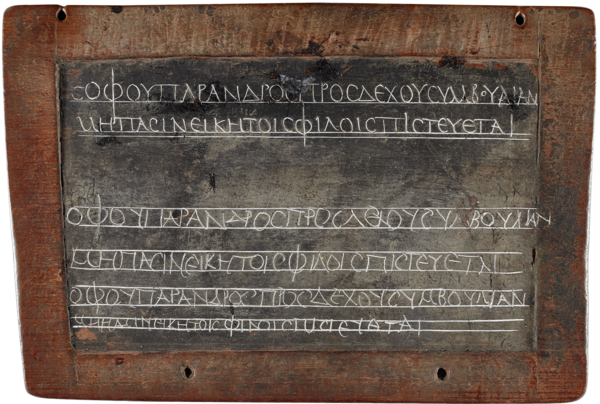 ΣΟΦΟΥΠΑΡΑΝΔΡΟΣΠΡΟΣΔΕΧΟΥΣΥΜΒΟΥΛΙΑΝ
ΜΗΠΑΣΙΝΕΙΚΗΤΟΙΣΦΙΛΟΙΣΠΙΣΤΕΥΕΤΑΙ
ΟΦΟΥΠΑΡΑΝΔΡΟΣΠΡΟΣΔΕΧΟΥΣΥΜΒΟΥΛΙΑΝ
ΜΗΠΑΣΙΝΕΙΚΗΤΟΙΣΦΙΛΟΙΣΠΙΣΤΕΥΕΤΑΙ
ΟΦΟΥΠΑΡΑΝΔΡΟΣΠΡΟΣΔΕΧΟΥΣΥΜΒΟΥΛΙΑΝ
ΜΗΠΑΣΙΝΕΙΚΗΤΟΙΣΦΙΛΟΙΣΠΙΣΤΕΥΕΤΑΙ